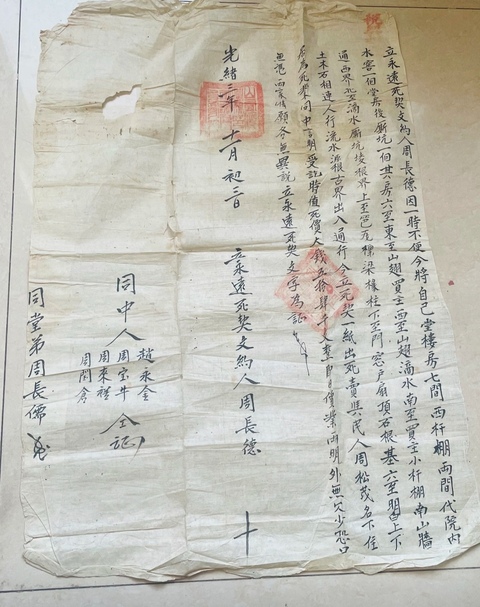 立永遠死契文約人周長德因一時不便今將自己堂樓房七間西杆棚兩間代院內
水窖一個堂房後廁坑一個共房六至東至山翅買主西至山翅滴水南至買主小杆棚南山牆
通西界北至滴水廁坑墁根界上至笆瓦椽梁檁柱下至門窓戶扇頂石根基六至明白上下
土木石相連人行流水源根古界出入通行今立死契一紙出死賣與民人周松茂名下住
居為死業同中言明受訖時值死價大錢五拾肆千文整即日價業兩明外無欠少恐口
無憑兩家情願各無異説立永遠死契文字為証
光緒三年十一月初三日 立永遠死契文約人周長德 十
同中人 趙永金 周宝井 周來禮 周開倉 仝証
同堂弟周長儒